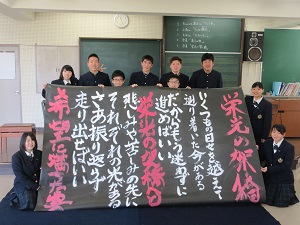 栄光の架橋
いくつもの日々を越えて
辿り着いた今がある
だからもう迷わずに
進めばいい
栄光の架橋へ
悲しみや苦しみの先に
それぞれの光がある
さあ振り返らず
走り出せばいい
希望に満ちた空